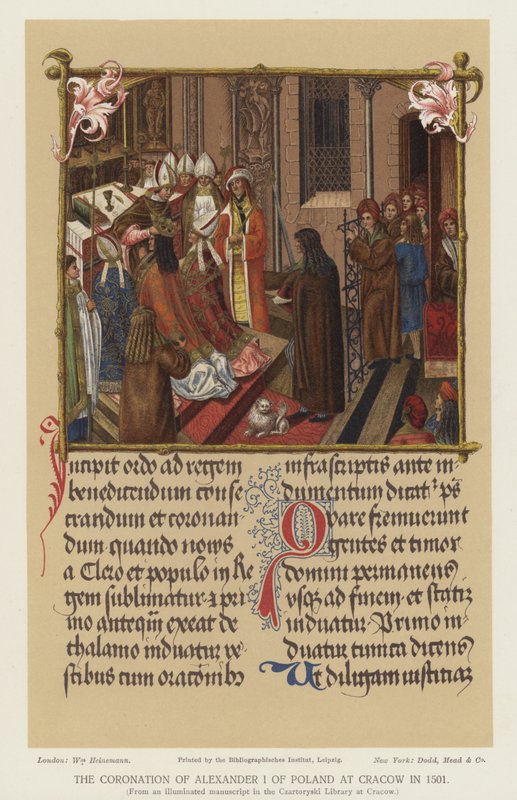 Incipit ordo ad regem
benedicendum conse
crandum et coronan-
dum quando novus
a Clero et populo in Re
gem sublimatur ⁊ pri
mo anteqm̄ exeat de
thalamo induatur ve-
stibus cum oracōnibꝫ
infrascriptis ante in-
dumentum dicatʳ ps̄
Quare fremuerunt
gentes et timor
domini permanens
vsqꝫ ad finem et statiꝫ
induatur Primo in-
duatur tunica dicens
Ut diligam iusticiaꝫ
London: Wm Heinemann.
Printed by the Bibliographisches Institut, Leipzig.
New York: Dodd, Mead & Co.
THE CORONATION OF ALEXANDER I OF POLAND AT CRACOW IN 1501.
(From an illuminated manuscript in the Czartoryski Library at Cracow.)